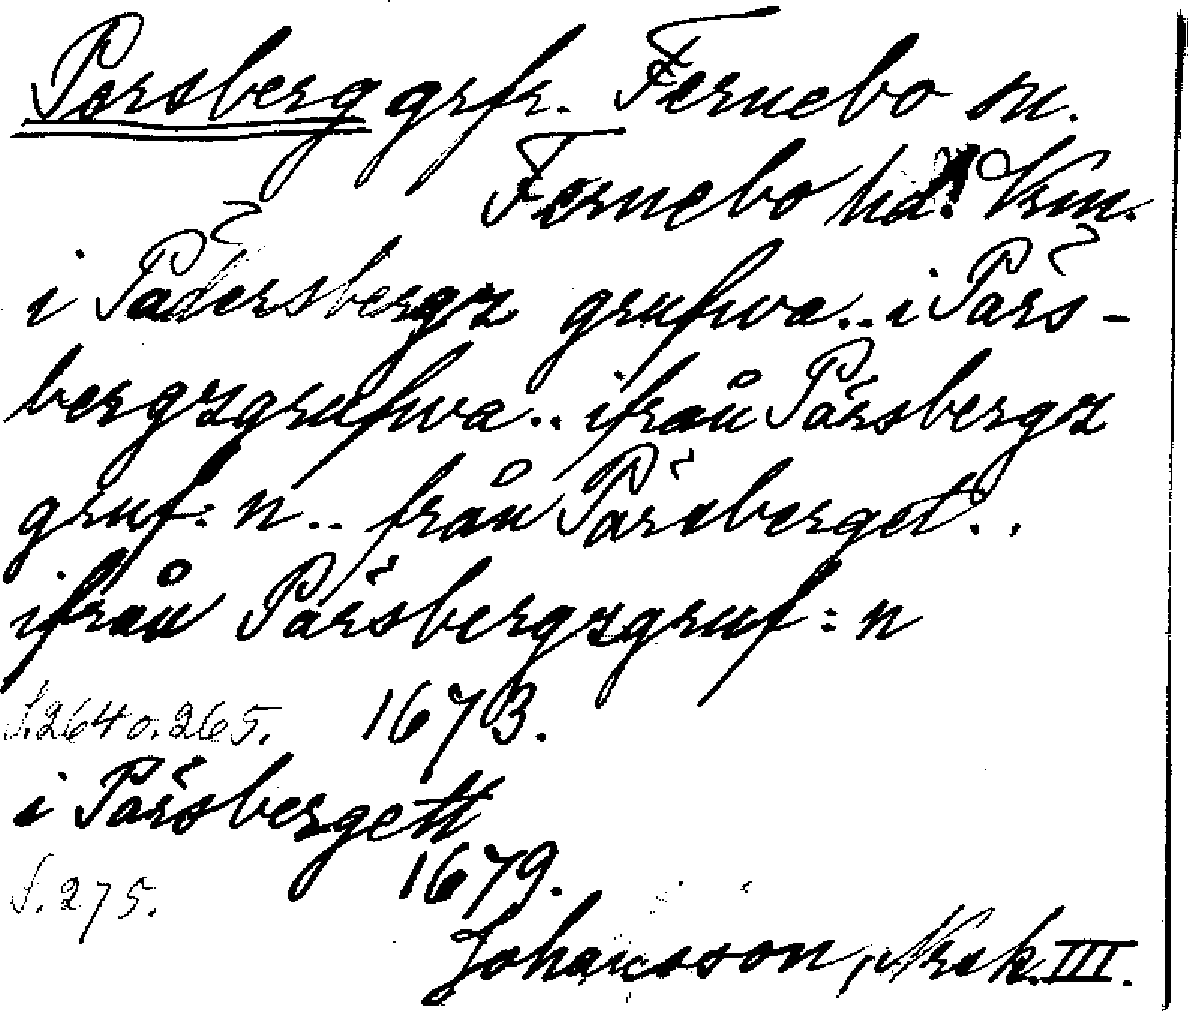 Persberg grfr. Fernebo sn.
Fernebo hd. Vrm.
i Pädersbergz grufwa.. i Pärs-
bergzgrufwa.. ifrån Pärsbergz
gruf:n.. från Pärsberget..
ifrån Pärsbergzgruf:n
S.264 o. 265. 1673.
i Pärsbergett
S.275. 1679.
Johansson, Norsk. III.